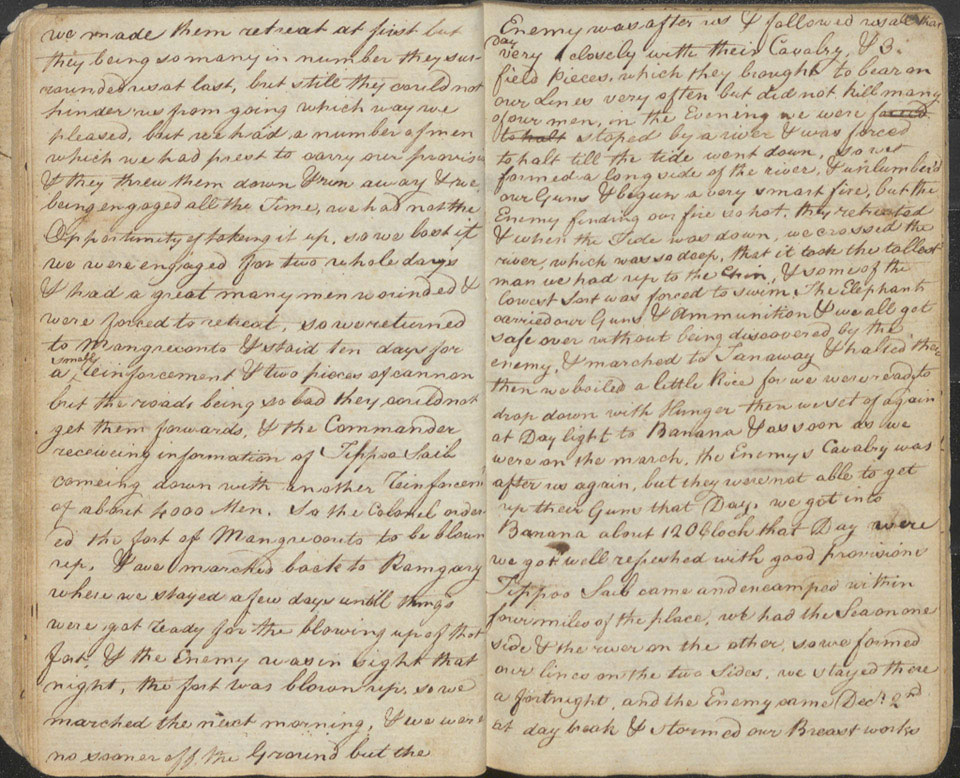 we made them retreat at first but
they being so many in number they sur-
rounded us at last, but still they could not
hinder us from going which way we
pleased, but we had a number of men
which we had prest to carry our provisi
& they threw them down & run away & we
being engaged all the Time, we had not the
Opportunity of taking it up, so we lost it
we were engaged for two whole days
& had a great many men wounded &
were forced to retreat, so we returned
to Mangreconto & staid ten days for
a small Reinforcement & two pieces of cannon
but the roads being so bad they could not
get them forwards, & the Commander
receiveing information of Tippoo Saib
comeing down with another Reinforcem
of about 4000 Men. So the Colonel order-
ed the fort of Mangreconto to be blown
up, & we marched back to Ramgary
where we stayed a few days untill things
were got ready for the blowing up of that
fort, & the Enemy was in sight that
night, the fort was blown up, so we
marched the next morning, & we were
no sooner off the Ground but the
Enemy was after us & followed us all that
day very closely with their Cavalry, & 3
field Pieces, which they bought to bear on
our Lines very often but did not kill many
of our men, on the Evening we were forced
to halt stoped by a river & was forced
to halt till the tide went down, so we
formed a long side of the river, & unlumber'd
our Guns & begun a very smart fire, but the
Enemy finding our fire so hot, they retreated
& when the Tide was down, we crossed the
river, which was so deep, that it took the tallest
man we had up to the Chin, & some of the
lowest sort was forced to swim. The Elephant
carried our Guns & Ammunition & we all got
safe over without being discovered by the
enemy, & marched to Tanaway & halted thair
then we boiled a little Rice for we were ready to
drop down with Hunger then we set of again
at Day light to Banana & as soon as we
were on the march, the Enemys Cavalry was
after us again, but they were not able to get
up their Guns that Day, we got into
Banana about 12 OClock that Day were
we got well refreshed with good provisions
Tippoo Saib came and encamped within
four miles of the place, we had the Sea on one
side & the river on the other, so we formed
our lines on the two Sides, we stayed there
a fortnight, and the Enemy came Decr. 2nd
at day break & stormed our Breast works